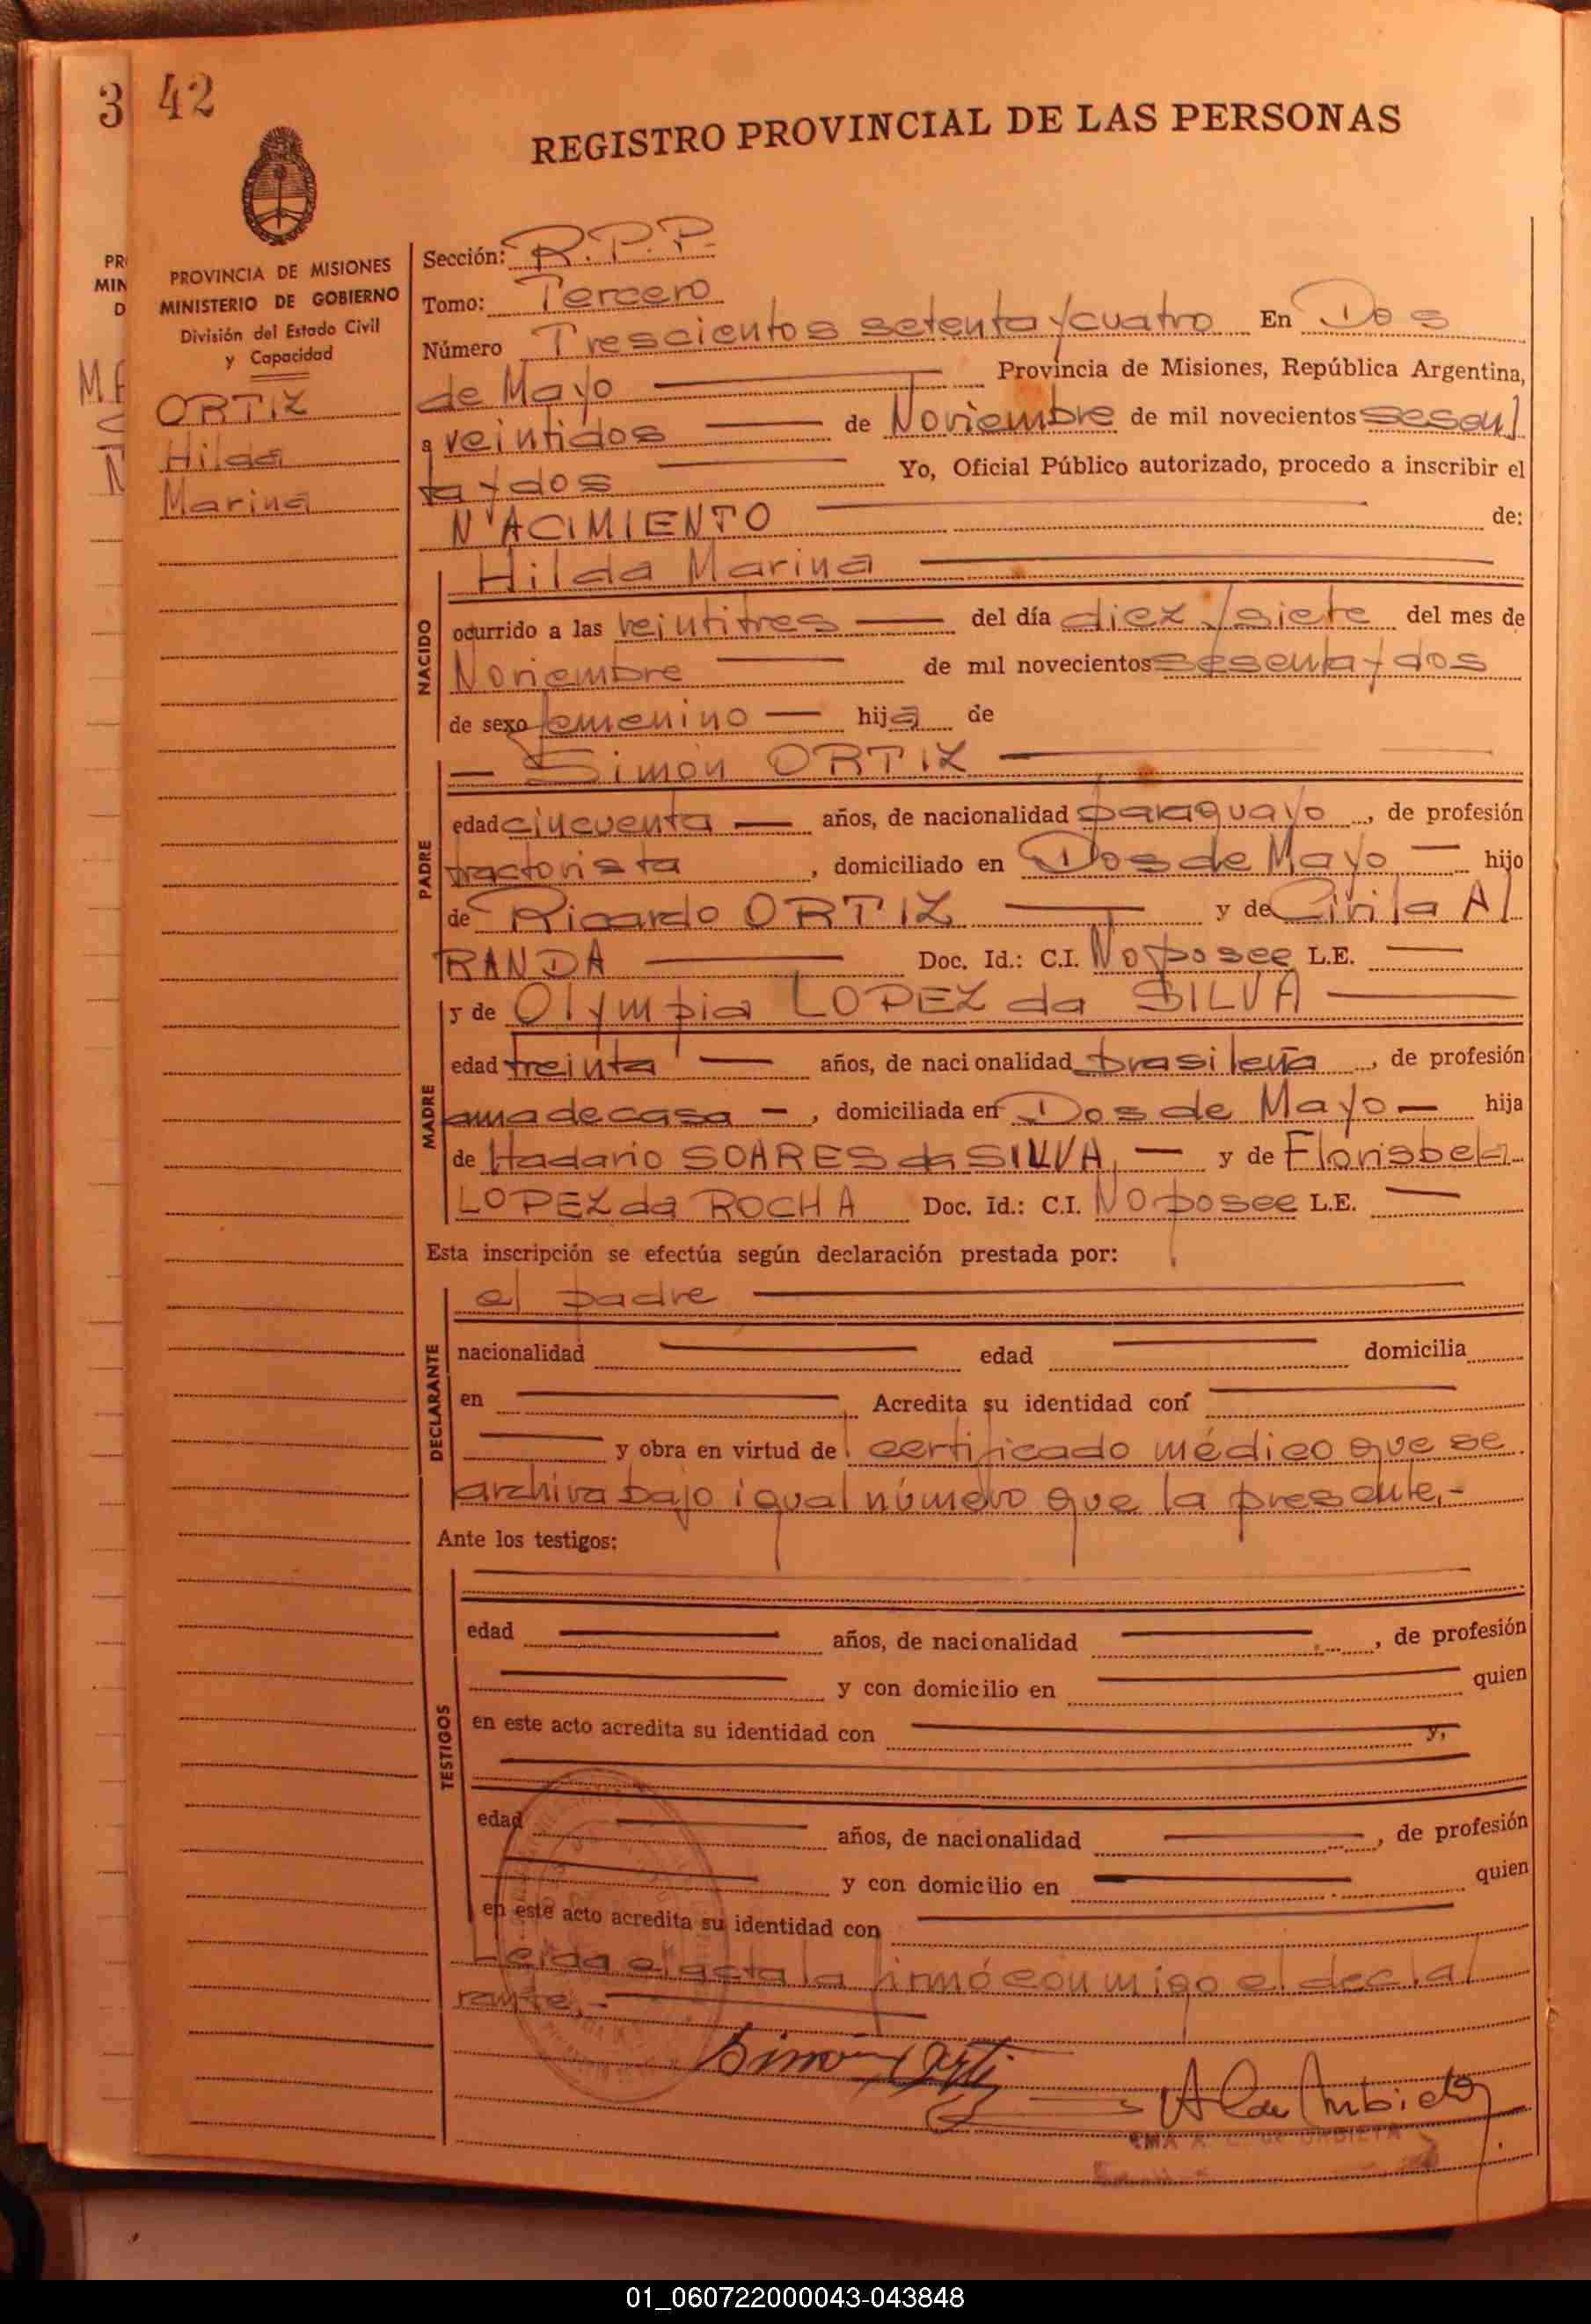 3 42
REGISTRO PROVINCIAL DE LAS PERSONAS
PROVINCIA DE MISIONES
MINISTERIO DE GOBIERNO
División del Estado Civil
y Capacidad
ORTIZ
Hilda
Marina
Sección: R.P.P.
Tomo: Tercero
Número Trescientos setenta y cuatro En Dos
de Mayo Provincia de Misiones, República Argentina,
a veintidos de Noviembre de mil novecientos sesen
ta y dos Yo, Oficial Público autorizado, procedo a inscribir el
NACIMIENTO de:
Hilda Marina
NACIDO
ocurrido a las veintitres del día diez y siete del mes de
Noviembre de mil novecientos sesenta y dos
de sexo femenino hija de
Simón ORTIZ
PADRE
edad cincuenta años, de nacionalidad paraguayo, de profesión
tractorista, domiciliado en Dos de Mayo hijo
de Ricardo ORTIZ y de Cirila A
RANDA Doc. Id.: C.I. No posee L.E.
MADRE
y de Olympia LOPEZ da SILVA
edad treinta años, de nacionalidad brasileña, de profesión
ama de casa, domiciliada en Dos de Mayo hija
de Hadario SOARES da SILVA, y de Florisbela
LOPEZ da ROCHA Doc. Id.: C.I. No posee L.E.
Esta inscripción se efectúa según declaración prestada por:
el padre
DECLARANTE
nacionalidad edad domicilia
en Acredita su identidad con
y obra en virtud del certificado médico que se
archiva bajo igual número que la presente.-
Ante los testigos:
TESTIGOS
edad años, de nacionalidad , de profesión
y con domicilio en quien
en este acto acredita su identidad con y,
edad años, de nacionalidad , de profesión
y con domicilio en quien
en este acto acredita su identidad con
Leida el acta la firmó conmigo el decla
rante.-
Simón Orti
A de Urbieta
DE URBIETA
01_060722000043-043848